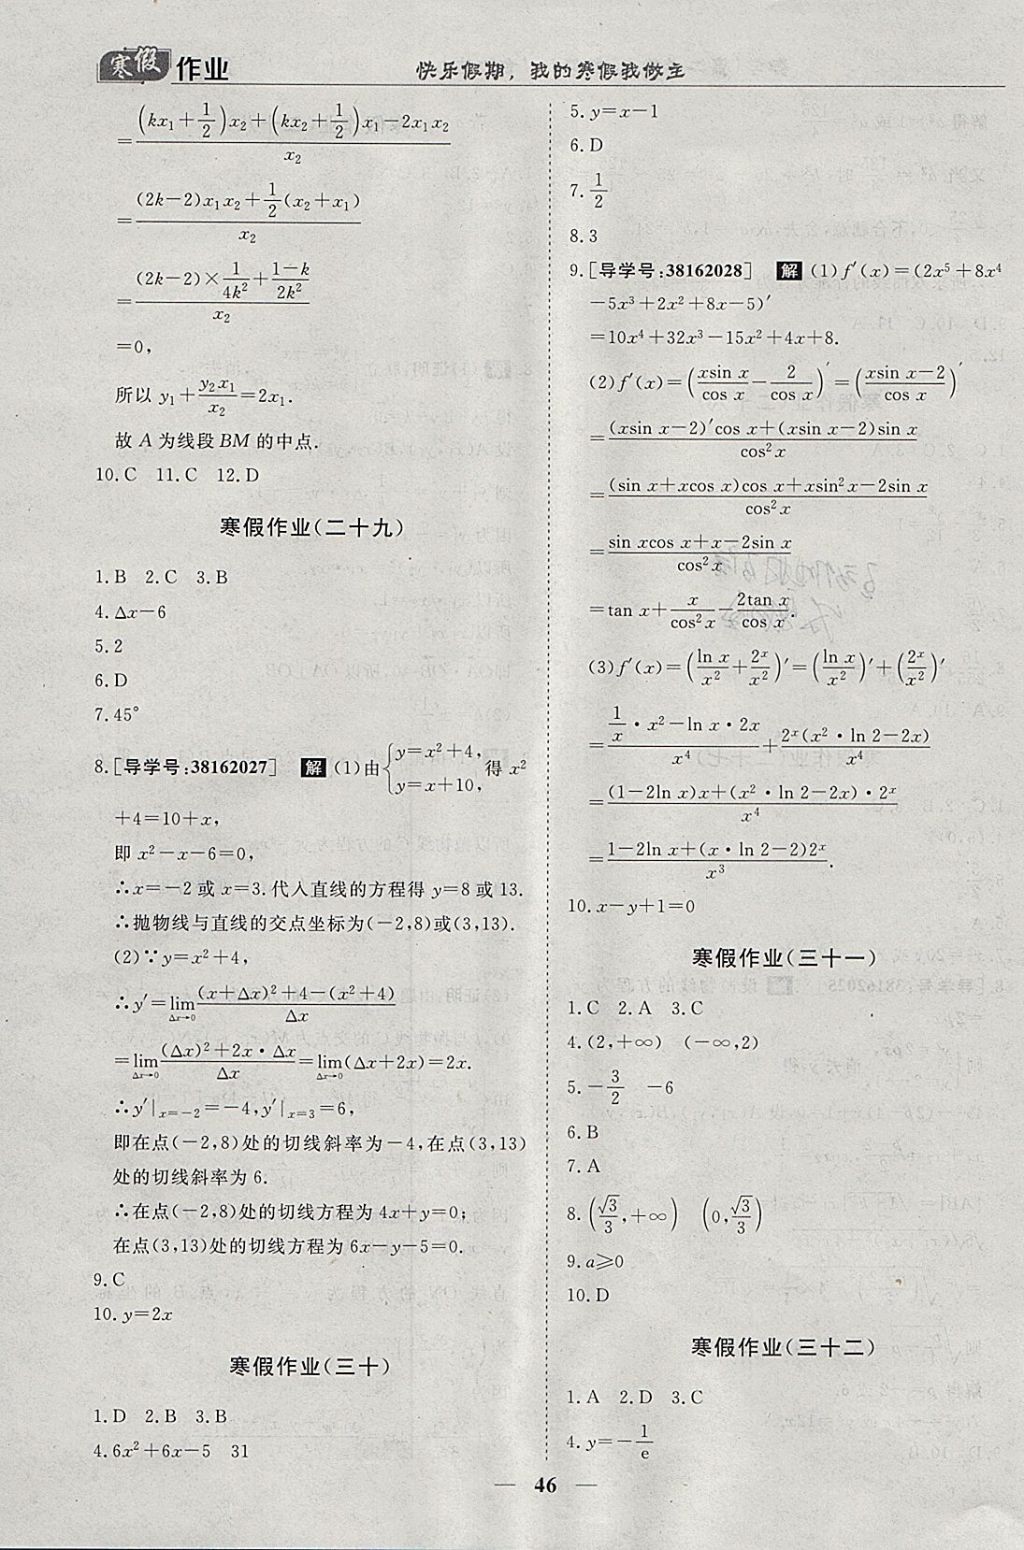 寒假作业 快乐假期，我的寒假我做主
=((kx₁+1/2)x₂+(kx₂+1/2)x₁-2x₁x₂)/x₂
=((2k-2)x₁x₂+1/2(x₂+x₁))/x₂
=((2k-2)×1/4k²+(1-k)/2k²)/x₂
=0,
所以 y₁+y₂x₁/x₂=2x₁.
故 A 为线段 BM 的中点.
10.C 11.C 12.D
寒假作业(二十九)
1.B 2.C 3.B
4.Δx-6
5.2
6.D
7.45°
8.[导学号:38162027] 解 (1)由{y=x²+4, y=x+10, 得 x²
+4=10+x,
即 x²-x-6=0,
∴x=-2 或 x=3.代入直线的方程得 y=8 或 13.
∴抛物线与直线的交点坐标为(-2,8)或(3,13).
(2)∵y=x²+4,
∴y′=lim(Δx→0) ((x+Δx)²+4-(x²+4))/Δx
=lim(Δx→0) ((Δx)²+2x·Δx)/Δx=lim(Δx→0)(Δx+2x)=2x.
∴y′|x=-2=-4,y′|x=3=6,
即在点(-2,8)处的切线斜率为-4,在点(3,13)
处的切线斜率为 6.
∴在点(-2,8)处的切线方程为 4x+y=0;
在点(3,13)处的切线方程为 6x-y-5=0.
9.C
10.y=2x
寒假作业(三十)
1.D 2.B 3.B
4.6x²+6x-5 31
5.y=x-1
6.D
7.1/2
8.3
9.[导学号:38162028] 解 (1)f′(x)=(2x⁵+8x⁴
-5x³+2x²+8x-5)′
=10x⁴+32x³-15x²+4x+8.
(2)f′(x)=(xsin x/cos x-2/cos x)′=((xsin x-2)/cos x)′
=((xsin x-2)′cos x+(xsin x-2)sin x)/cos²x
=((sin x+xcos x)cos x+xsin²x-2sin x)/cos²x
=(sin xcos x+x-2sin x)/cos²x
=tan x+x/cos²x-2tan x/cos x.
(3)f′(x)=(ln x/x²+2ˣ/x²)′=(ln x/x²)′+(2ˣ/x²)′
=(1/x·x²-ln x·2x)/x⁴+2ˣ(x²·ln 2-2x)/x⁴
=((1-2ln x)x+(x²·ln 2-2x)·2ˣ)/x⁴
=(1-2ln x+(x·ln 2-2)2ˣ)/x³.
10.x-y+1=0
寒假作业(三十一)
1.C 2.A 3.C
4.(2,+∞) (-∞,2)
5.-3/2 -6
6.B
7.A
8.(√3/3,+∞) (0,√3/3)
9.a≥0
10.D
寒假作业(三十二)
1.A 2.D 3.C
4.y=-1/e
— 46 —